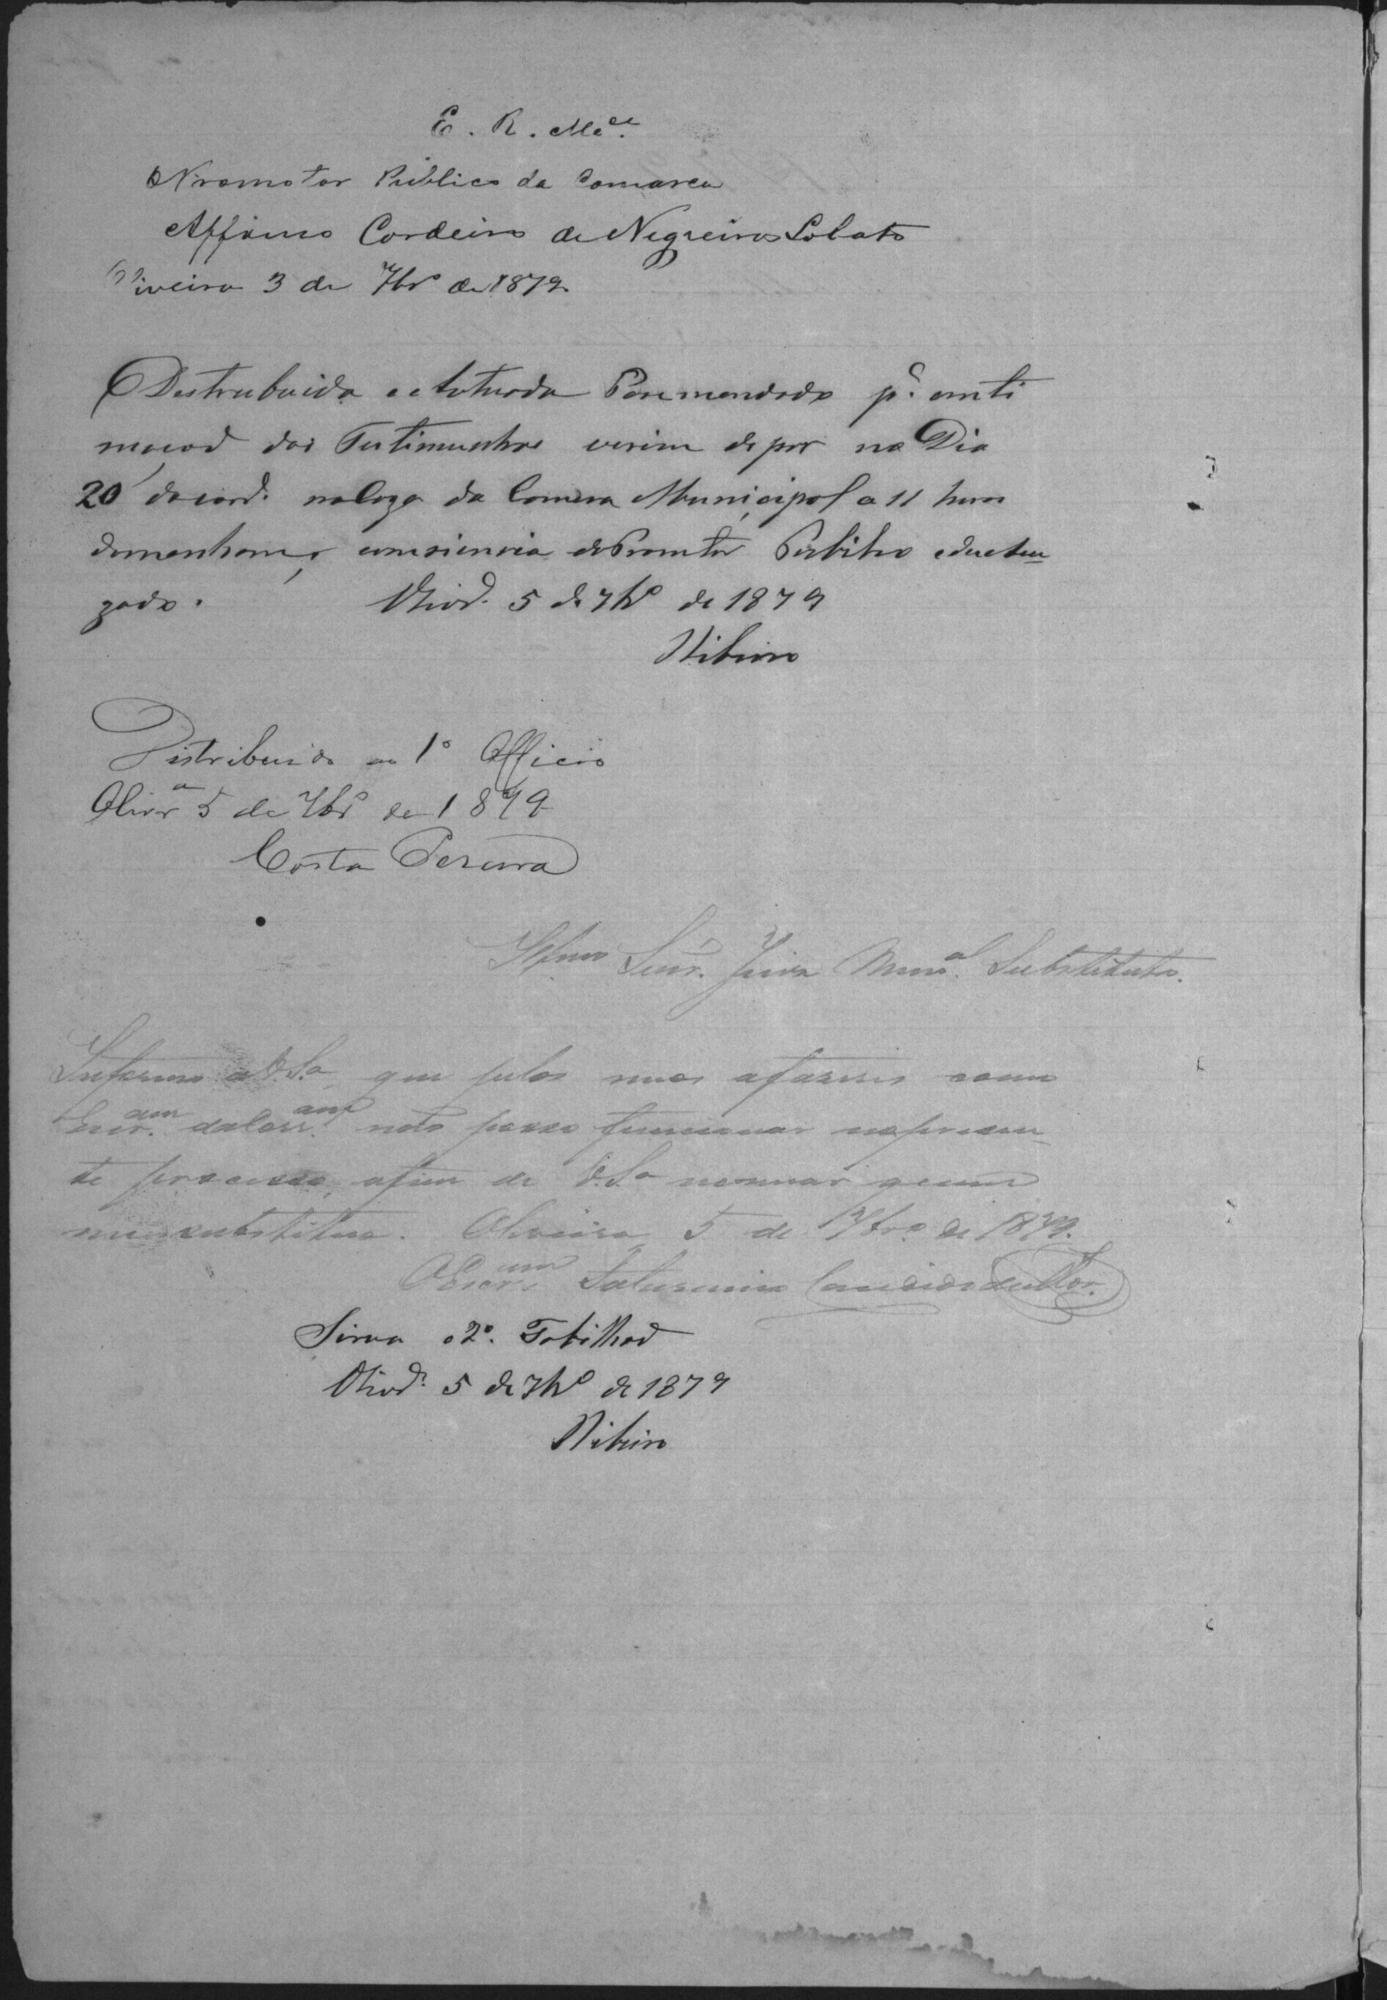 E. R. M.ce
O Promotor Publico da Comarca
Affonso Cordeiro de Negreiros Lobato
Oliveira 3 de 7br.o de 1879.
Destrubuida e Autuada Pase mendado p.a enti
macaõ das Testimunhas virem depor no Dia
20 do cor.e na Caza da Comera Municipol a 11 horas
demanham, comsiencia do Promtor Publico e do
zado. Oliv.a 5 de 7br.o de 1879
Ribeiro
Distribuido ao 1º Officio
Oliv.a 5 de 7br.o de 1879
Costa Pereira
Illmo Senr. Juiz Mun.al Substituto.
Informo a V.S.a que pelos meus afazeres como
Escr.am da Cor não posso funcionar no presen-
te processo, afim de V.S.a nomear quem
me substitua. Oliveira 5 de 7bro. de 1879.
O Escr.am Saturnino Candido
Sirva o 2º. Tabilhaõ
Oliv.a 5 de 7br.o de 1879
Ribeiro